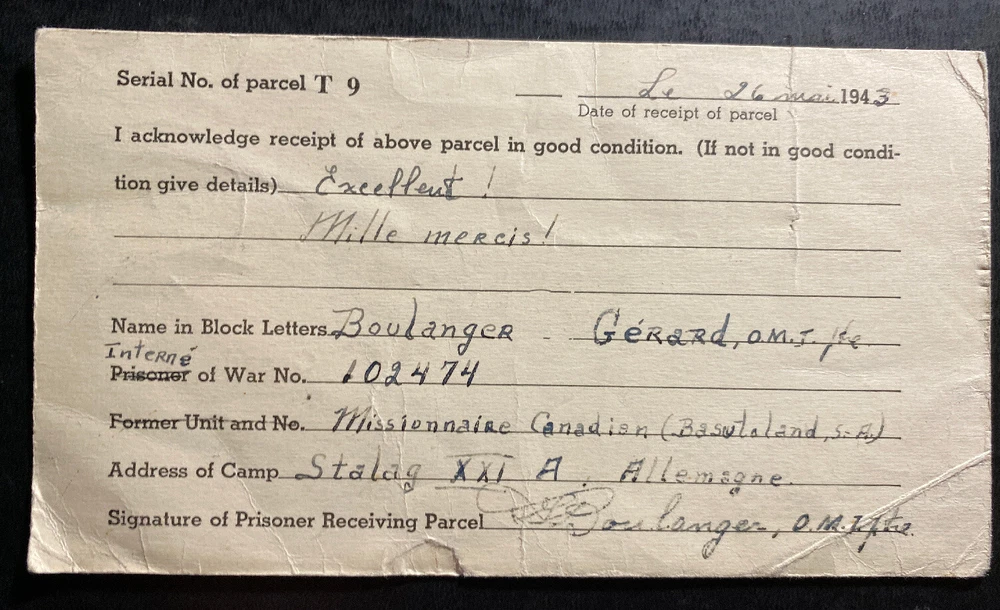 Serial No. of parcel T 9
Le 26 mai 1943
Date of receipt of parcel
I acknowledge receipt of above parcel in good condition. (If not in good condi-
tion give details) Excellent !
Mille mercis !
Name in Block Letters Boulanger - Gérard, O.M.I. ptre.
Interné
Prisoner of War No. 102474
Former Unit and No. Missionnaire Canadien (Basutoland, S.A.)
Address of Camp Stalag XXI A, Allemagne.
Signature of Prisoner Receiving Parcel Boulanger, O.M.I. ptre.